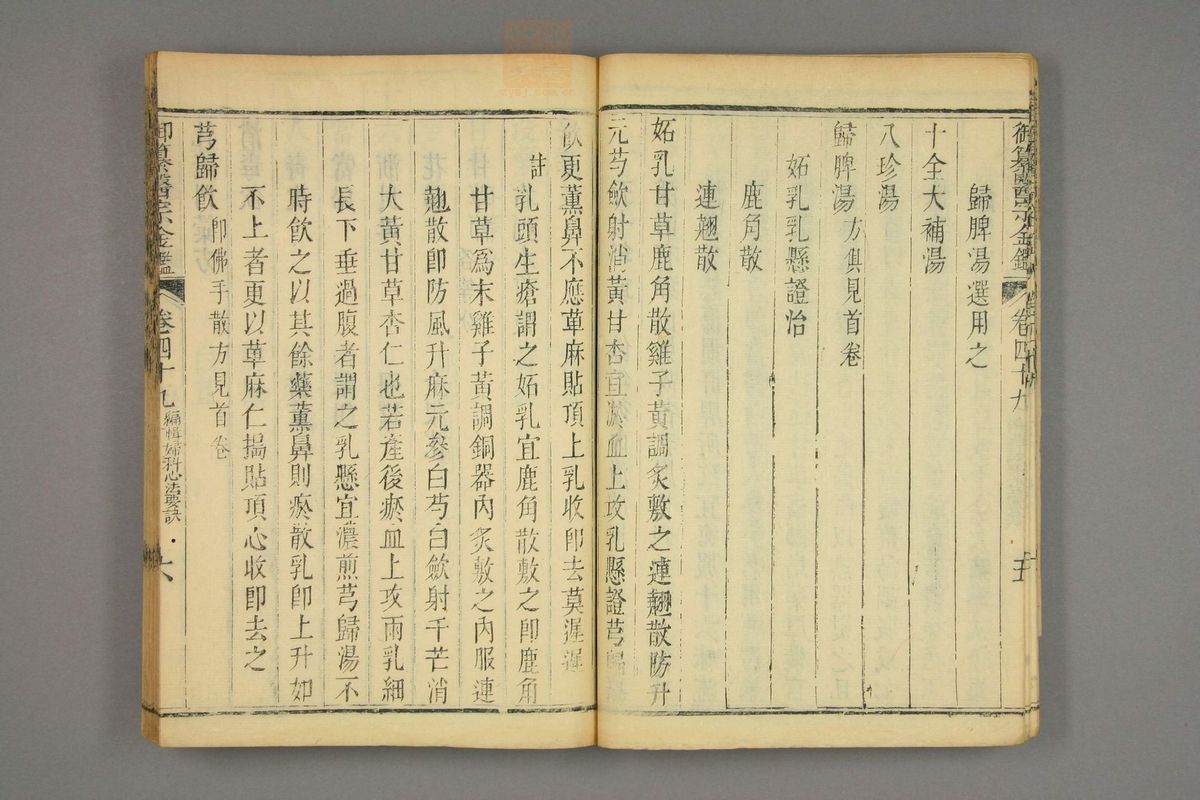 御纂醫宗金鑑 卷四十九 五
歸脾湯選用之
十全大補湯
八珍湯
歸脾湯方俱見首卷
妬乳乳懸證治
鹿角散
連翹散
妬乳甘草鹿角散雞子黃調炙敷之連翹散防升
元芍蘞射消黃甘杏宜瘀血上攻乳懸證芎歸
飲更薰鼻不應萆麻貼頂上乳收卽去莫遲遲
註乳頭生瘡謂之妬乳宜鹿角散敷之卽鹿角
甘草為末雞子黃調銅器內炙敷之內服連
翹散卽防風升麻元參白芍白蘞射干芒消
大黃甘草杏仁也若產後瘀血上攻兩乳細
長下垂過腹者謂之乳懸宜濃煎芎歸湯不
時飲之以其餘藥薰鼻則瘀散乳卽上升如
不上者更以萆麻仁搗貼頂心收卽去之
芎歸飲卽佛手散方見首卷
御纂醫宗金鑑 卷四十九 編輯婦科心法要訣 六